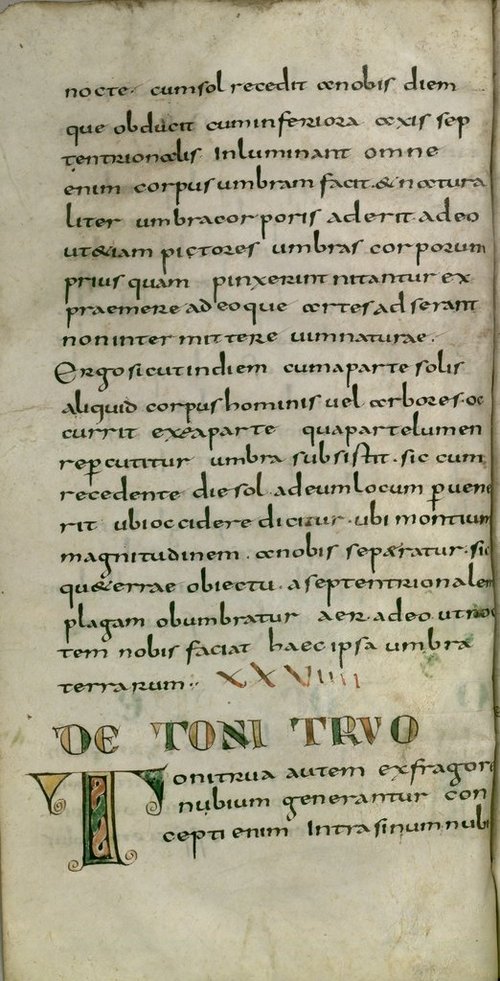 nocte. cumsol recedit anobis diem
que obducit cuminferiora axis sep
tentrionalis. Inluminant omne
enim corpus umbram facit. & natura
liter umbracorporis aderit. adeo
ut&iam pictores umbras corporum
priusquam pinxerint nitantur ex
praemere adeoque artes adserant
noninter mittere uimnaturae.
Ergosicutindiem cumaparte solis
aliquid corpushominis uel arbores. oc
currit exeaparte quapartelumen
repcutitur umbra subsistit. sic cum
recedente die sol. adeumlocum puene
rit ubioccidere dicitur. ubi montium
magnitudinem. anobis separatur. sic
qu&errae obiectu. aseptentrionalem
plagam obumbratur aer. adeo utnoc
tem nobis faciat haec ipsa umbra
terrarum. XXVIIII
DE TONITRVO
Tonitrua autem exfragore
nubium generantur con
cepti enim Intrasinumnubi